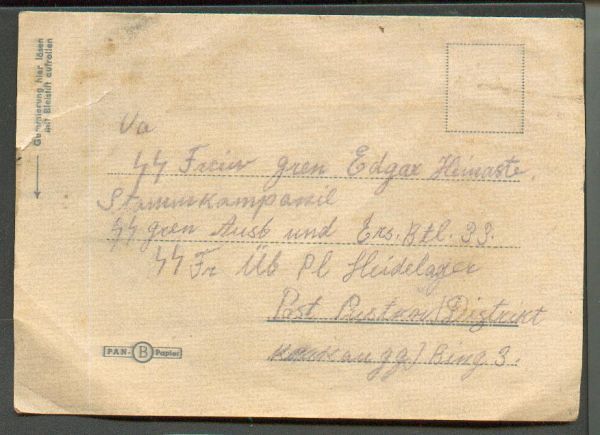 Gummierung hier lösen
mit Bleistift aufrollen
Va
SS Freiw gren Edgar Heinaste.
Stammkompanii
SS gren Ausb und Ers. Btl. 33.
SS Fr Üb Pl Heidelager
Post Pustkow/Distrikt
Ring 3.
PAN- B Papier